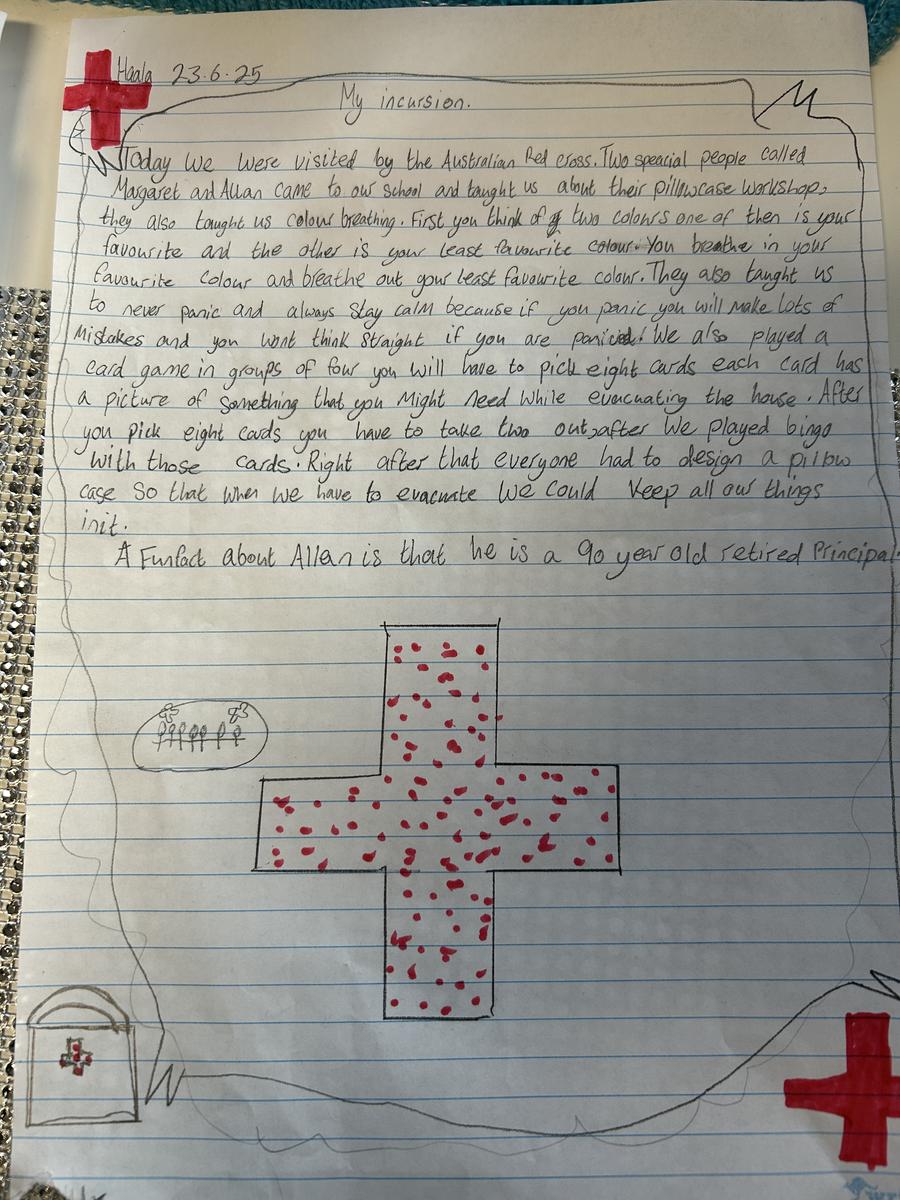 Haala 23.6.25
My incursion.
Today we were visited by the Australian Red cross. Two speacial people called
Margaret and Allan came to our school and taught us about their pillowcase workshop,
they also taught us colour breathing. First you think of two colours one of then is your
favourite and the other is your least favourite colour. You breathe in your
favourite colour and breathe out your least favourite colour. They also taught us
to never panic and always stay calm because if you panic you will make lots of
mistakes and you wont think straight if you are . We also played a
card game in groups of four you will have to pick eight cards each card has
a picture of something that you might need while evacuating the house. After
you pick eight cards you have to take two out, after we played bingo
with those cards. Right after that everyone had to design a pillow
case so that when we have to evacuate we could keep all our things
init.
A Funfact about Allan is that he is a 90 year old retired Principal.